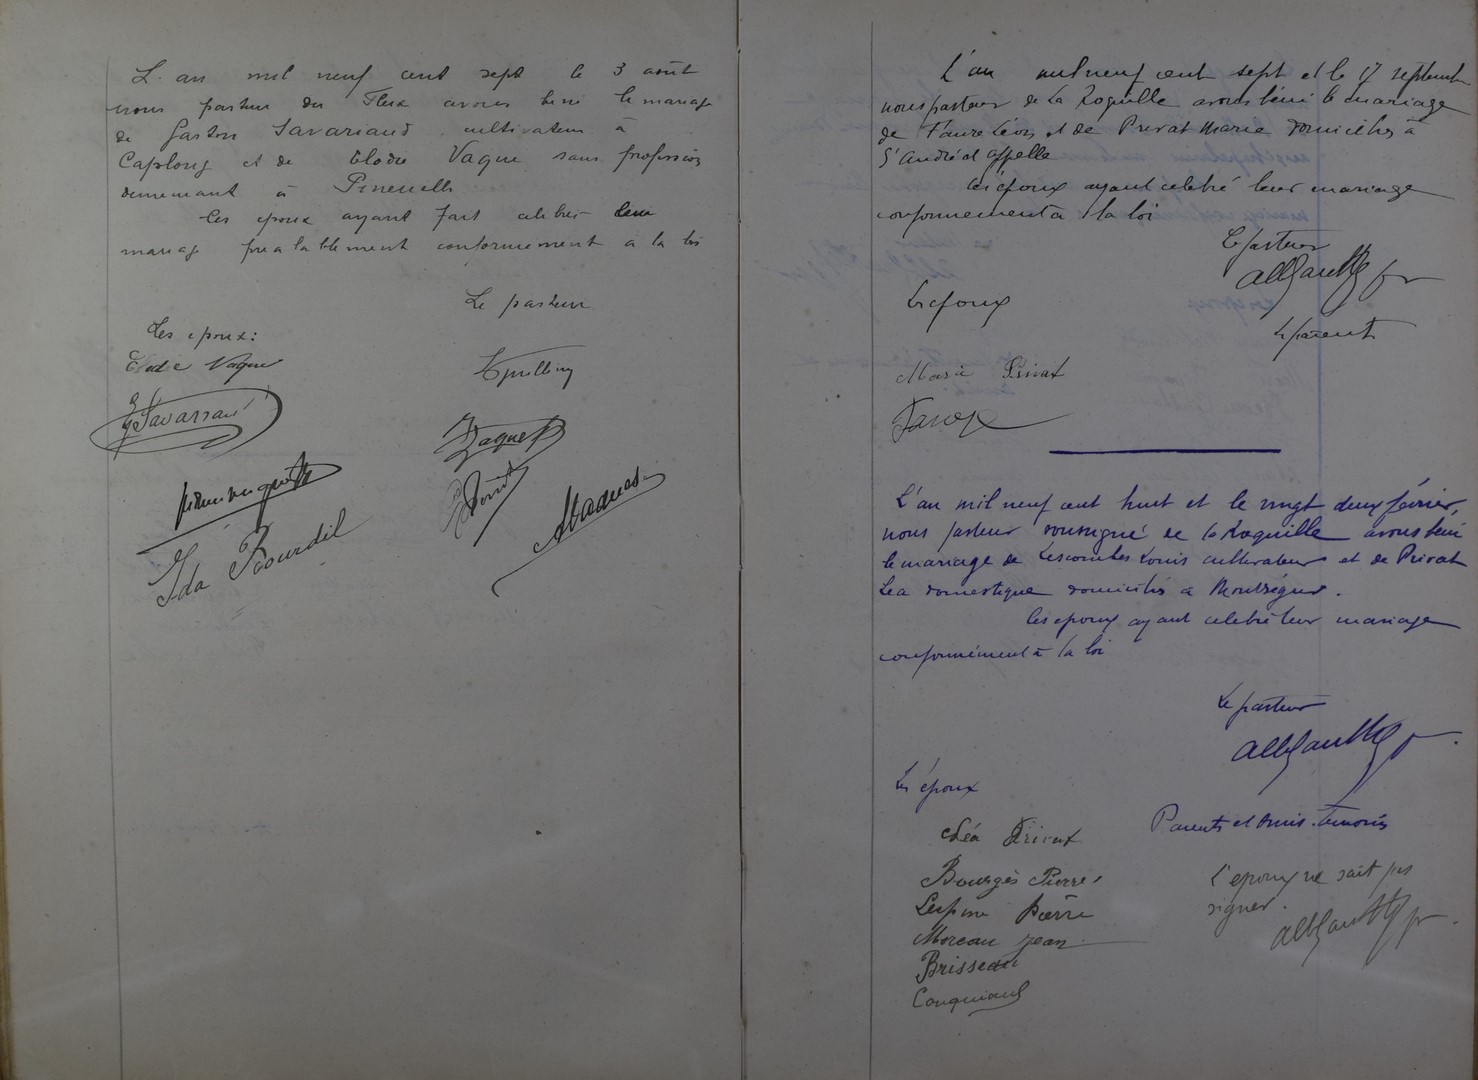 L'an mil neuf cent sept le 3 août
nous pasteur du Fleix avons beni le mariage
de Gaston Savariaud cultivateur à
Caplong et de Elodie Vague sans profession
demeurant à Pineuilh
Les epoux ayant fait celebrer leur
mariag prealablement conformement à la loi
Le pasteur
Les epoux:
Elodie Vague
G Savariaud
Ida Bourdil
L'an mil neuf cent sept et le 17 septembre
nous pasteur de La Roquille avons béni le mariage
de Faure Léon et de Privat Marie domiciliés à
St André et Appelle
Les époux ayant celebré leur mariage
conformement à la loi
Le pasteur
Les époux
Le parents
Marie Privat
L'an mil neuf cent huit et le vingt deux février,
nous pasteur soussigné de la Roquille avons béni
le mariage de Lescombes Louis cultivateur et de Privat
Lea domestique domiciliés à Monségur.
Les epoux ayant celebré leur mariage
conformément à la loi
Le pasteur
Les époux
Parents et Amis. Temoins
Léa Privat
Bourgès Pierre
Lespine Pierre
Moreau Jean
Brisseau
L'epoux ne sait pas
signer.